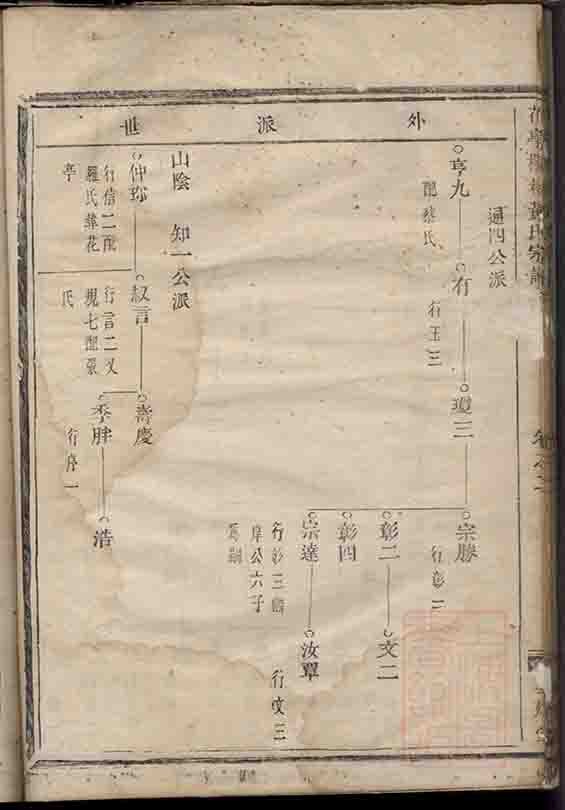 外派世
通四公派
亨九
配蔡氏
有一
行玉三
瓊三
宗勝
行彰一
彰二
文二
彰四
宗達
行彰三
岸公六子
為嗣
汝單
行文三
山陰 知一公派
仲珎
行信二配
羅氏葬花
亭
叔言
行言二又
規七配張
氏
壽慶
季胖
行序一
浩